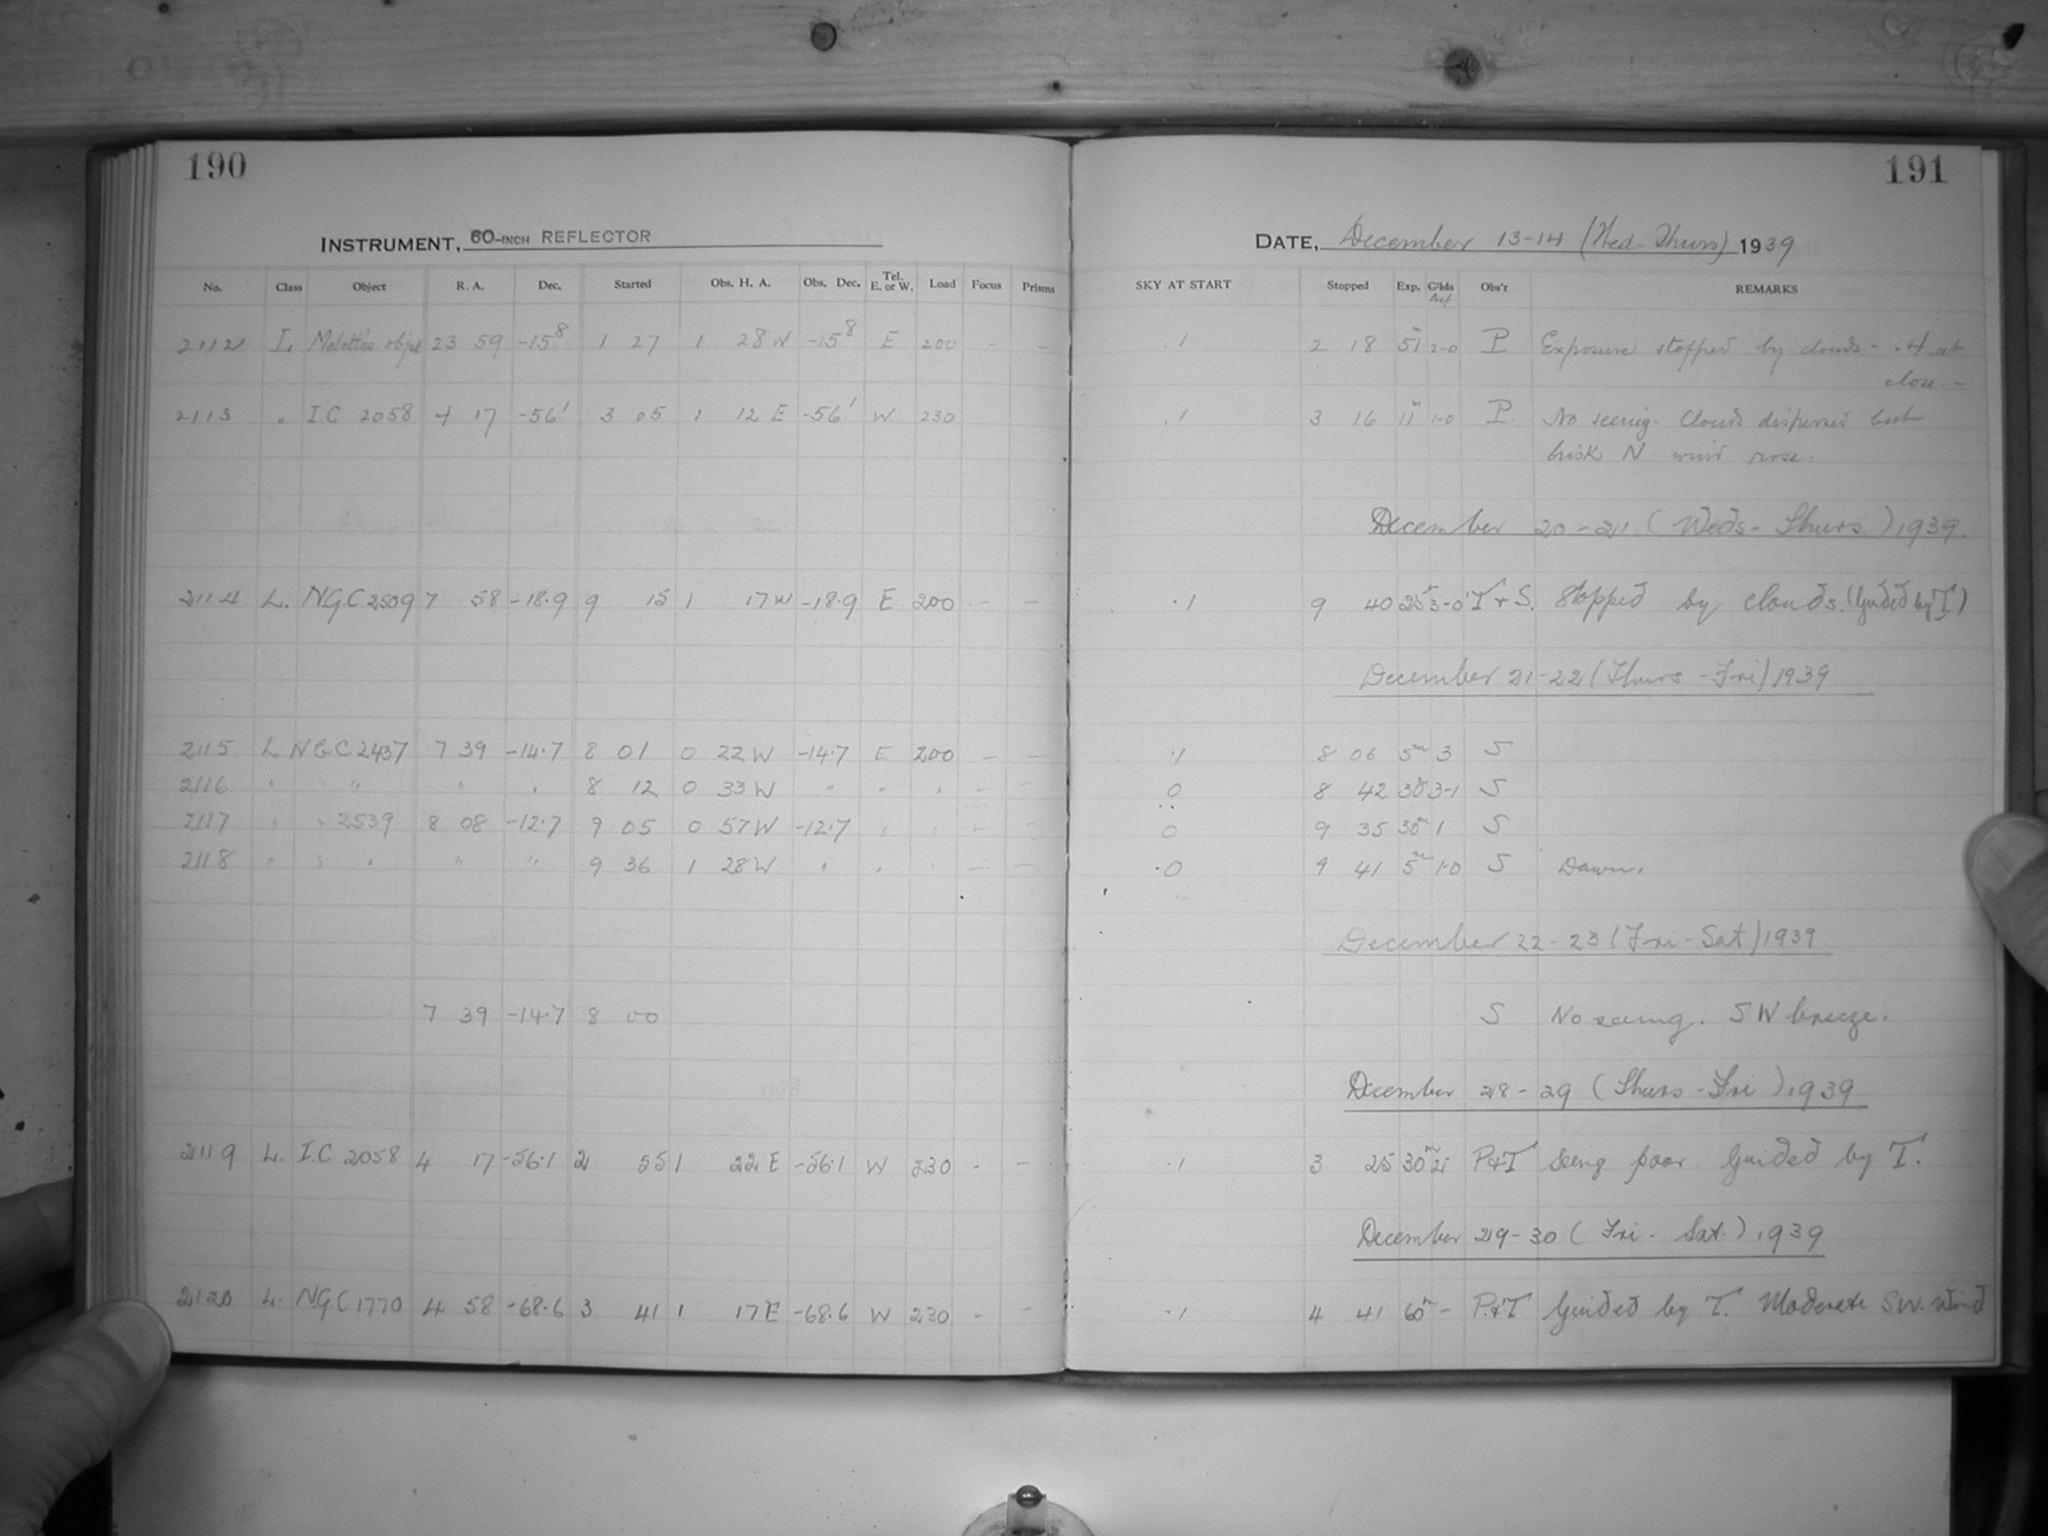 190
191
INSTRUMENT, 60-INCH REFLECTOR
DATE, December 13-14 (Wed-Thurs) 1939
No. Class Object R. A. Dec. Started Obs. H. A. Obs. Dec. Tel. E. or W. Load Focus Prisms SKY AT START Stopped Exp. G'lds Obs'r REMARKS
2112 L 23 59 -15 8 1 27 1 28 W -15 8 E 200 - - .1 2 18 51 2-0 P Exposure stopped by clouds - .4 at
close. -
2113 " I.C 2058 4 17 -56 1 3 05 1 12 E -56 1 W 230 .1 3 16 11 m 1-0 P. No seeing. Clouds dispersed but
brisk N wind rose.
December 20-21 (Weds-Thurs.) 1939.
2114 L. NGC 2509 7 58 -18.9 9 15 1 17 W -18.9 E 200 - - .1 9 40 25 m 3-0 T + S. Stopped by clouds. (Guided by T)
December 21-22 (Thurs-Fri) 1939
2115 L NGC 2437 7 39 -14.7 8 01 0 22 W -14.7 E 200 - - .1 8 06 5 m 3 S
2116 " " " " " 8 12 0 33 W " " " - - 0 8 42 30 3-1 S
2117 " " 2539 8 08 -12.7 9 05 0 57 W -12.7 " " - - 0 9 35 30 m 1 S
2118 " " " " " 9 36 1 28 W " " " - - .0 9 41 5 m 1-0 S Dawn.
December 22-23 (Fri-Sat) 1939
7 39 -14.7 8 00 S No seeing. SW breeze.
December 28-29 (Thurs-Fri) 1939
2119 L. I.C 2058 4 17 -56.1 2 55 1 22 E -56.1 W 230 - - .1 3 25 30 m 2 P+T Seeing poor. Guided by T.
December 29-30 (Fri-Sat.) 1939
2120 L. NGC 1770 4 58 -68.6 3 41 1 17 E -68.6 W 230 - - .1 4 41 60 m - P+T Guided by T. Moderate SW. Wind